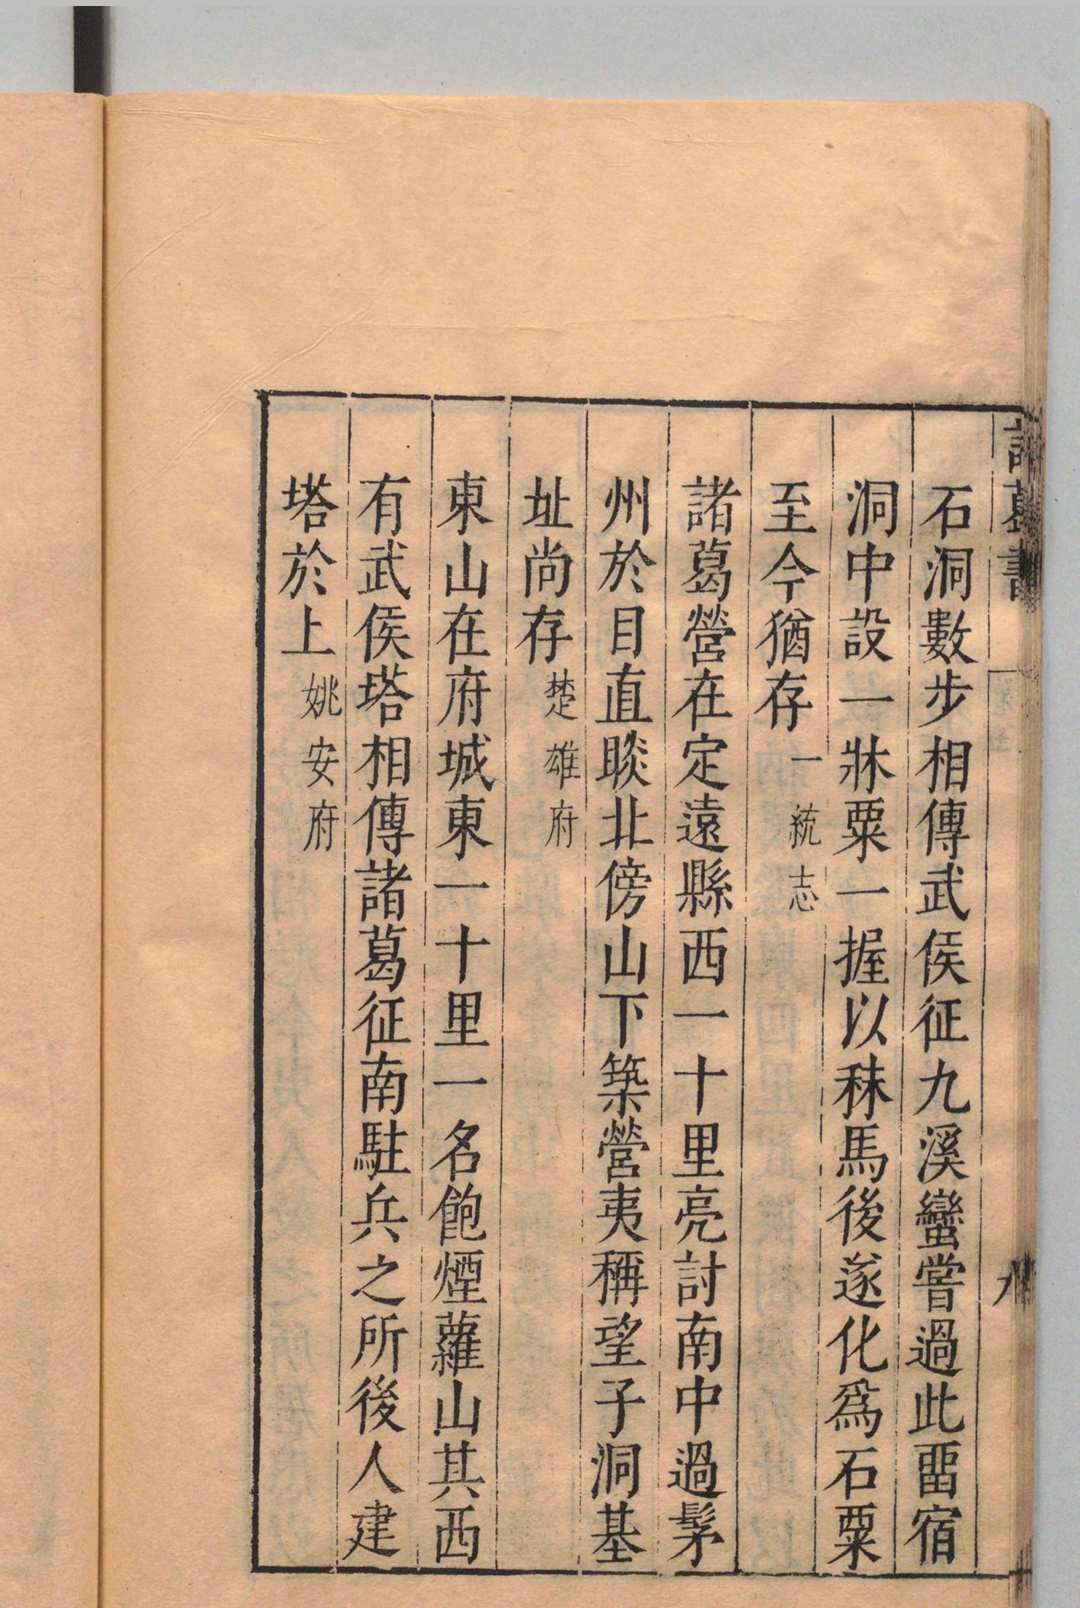 諸葛書
石洞數步相傳武侯征九溪蠻嘗過此畱宿
洞中設一牀粟一握以秣馬後遂化爲石粟
至今猶存一統志
諸葛營在定遠縣西一十里亮討南中過髳
州於目直睒北傍山下築營夷稱望子洞基
址尚存楚雄府
東山在府城東一十里一名飽煙蘿山其西
有武侯塔相傳諸葛征南駐兵之所後人建
塔於上姚安府